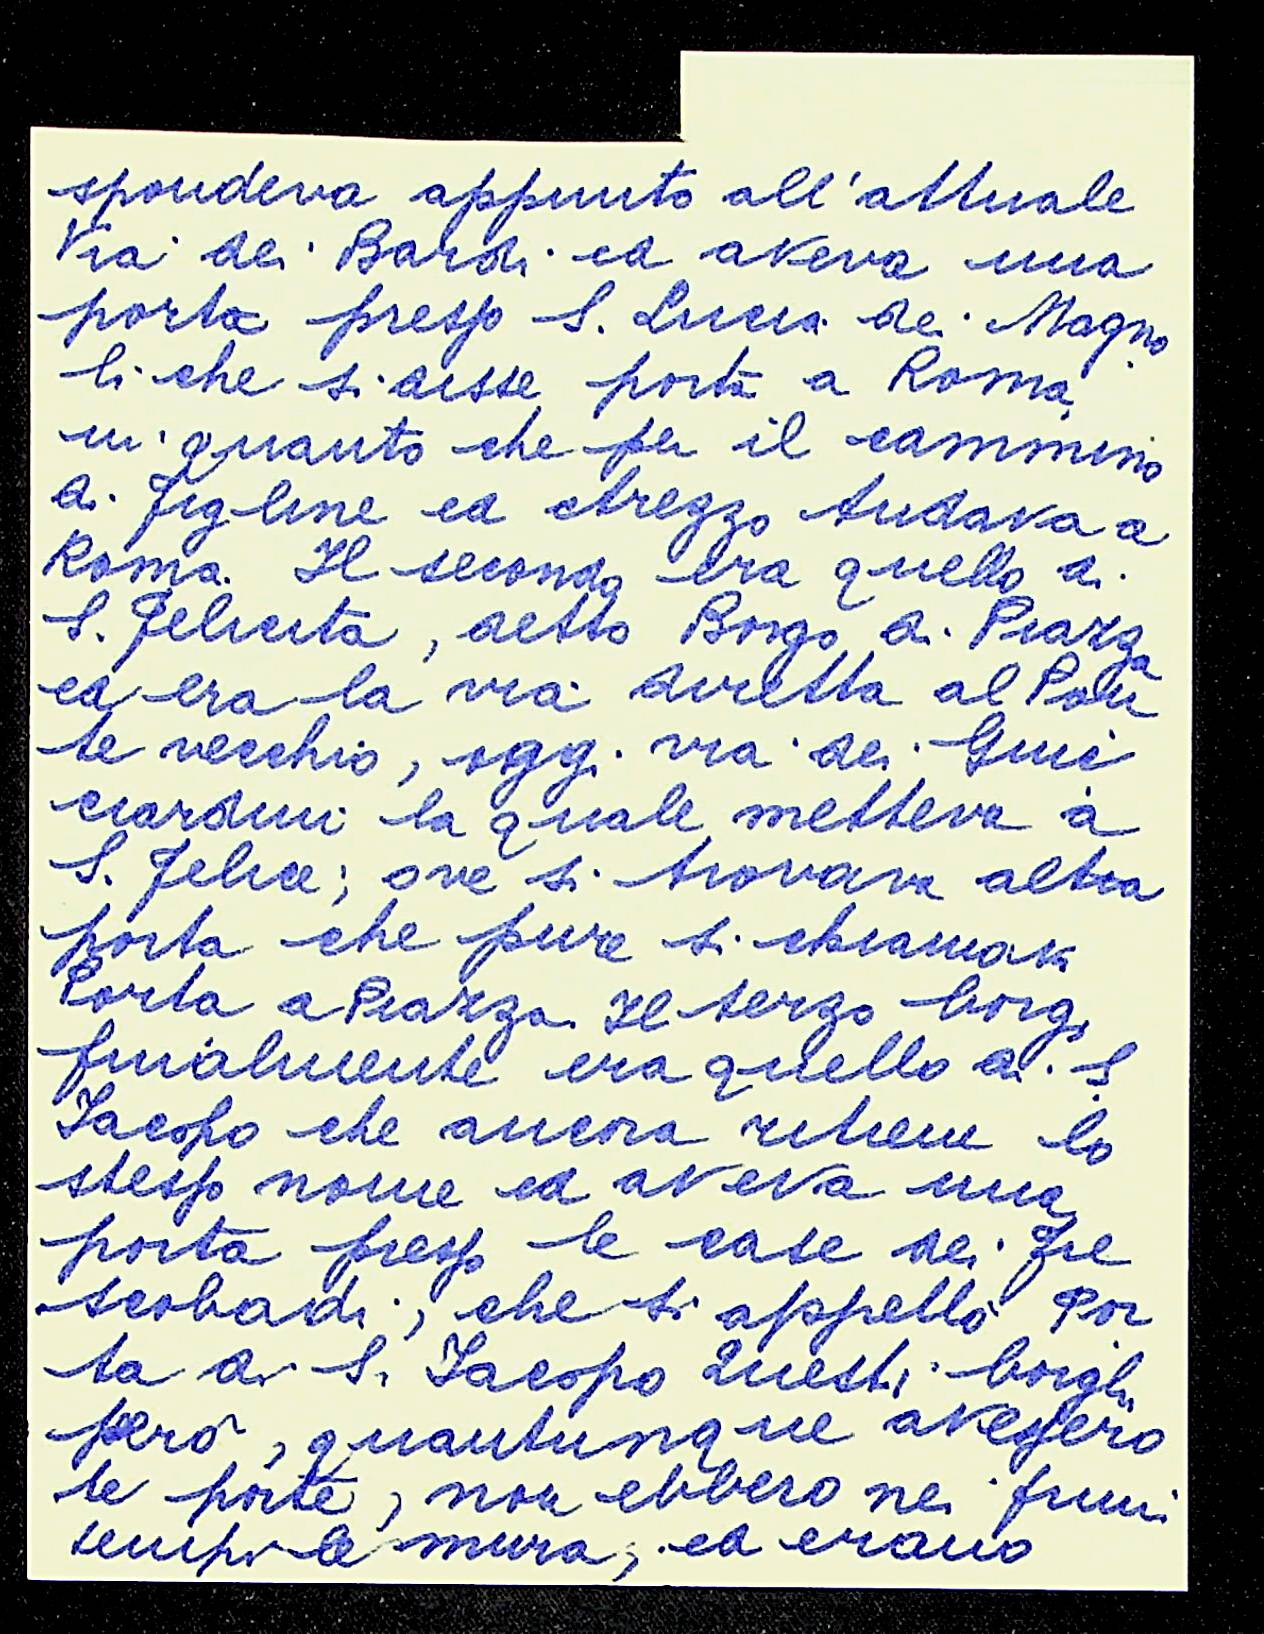 spondeva appunto all'attuale
Via dei Bardi ed aveva una
porta presso S. Lucia dei Magno
li che si disse porta a Roma,
in quanto che per il cammino
di Figline ed Arezzo andava a
Roma. Il secondo era quello di
S. Felicita, detto Borgo di Piazza
ed era la via diretta al Pon
te vecchio, oggi via dei Guic
ciardini la quale metteva a
S. Felice; ove si trovava altra
porta che pure si chiamava
Porta a Piazza. Il terzo borgo
finalmente era quello di S.
Jacopo che ancora ritiene lo
stesso nome ed aveva una
porta presso le case dei Fre
scobaldi, che si appellò Por
ta di S. Jacopo Questi borghi
però, quantunque avessero
le porte, non ebbero nei primi
tempi le mura, ed erano